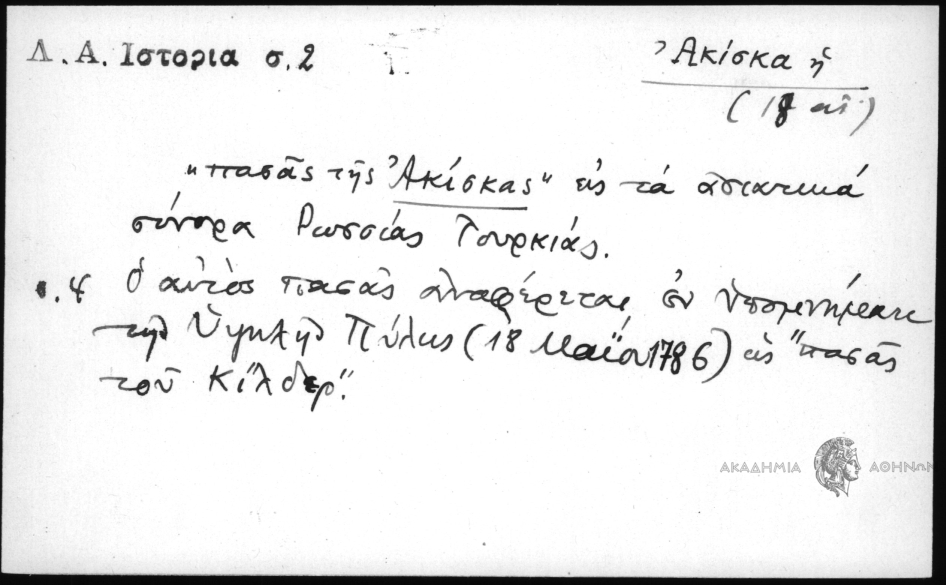 Λ. Α. Ιστορια σ. 2
Ἀκίσκα ἡ
(18 αἰ.)
"πασᾶς τῆς Ἀκίσκας" εἰς τά ἀσιατικά
σύνορα Ρωσσίας Τουρκίας.
σ. 4 Ὁ αὐτὸς πασᾶς ἀναφέρεται ἐν ὑπομνήματι
τῆς Ὑψηλῆς Πύλης (18 Μαΐου 1786) ὡς "πασᾶς
τοῦ Κίλδερ".
ΑΚΑΔΗΜΙΑ ΑΘΗΝΩΝ